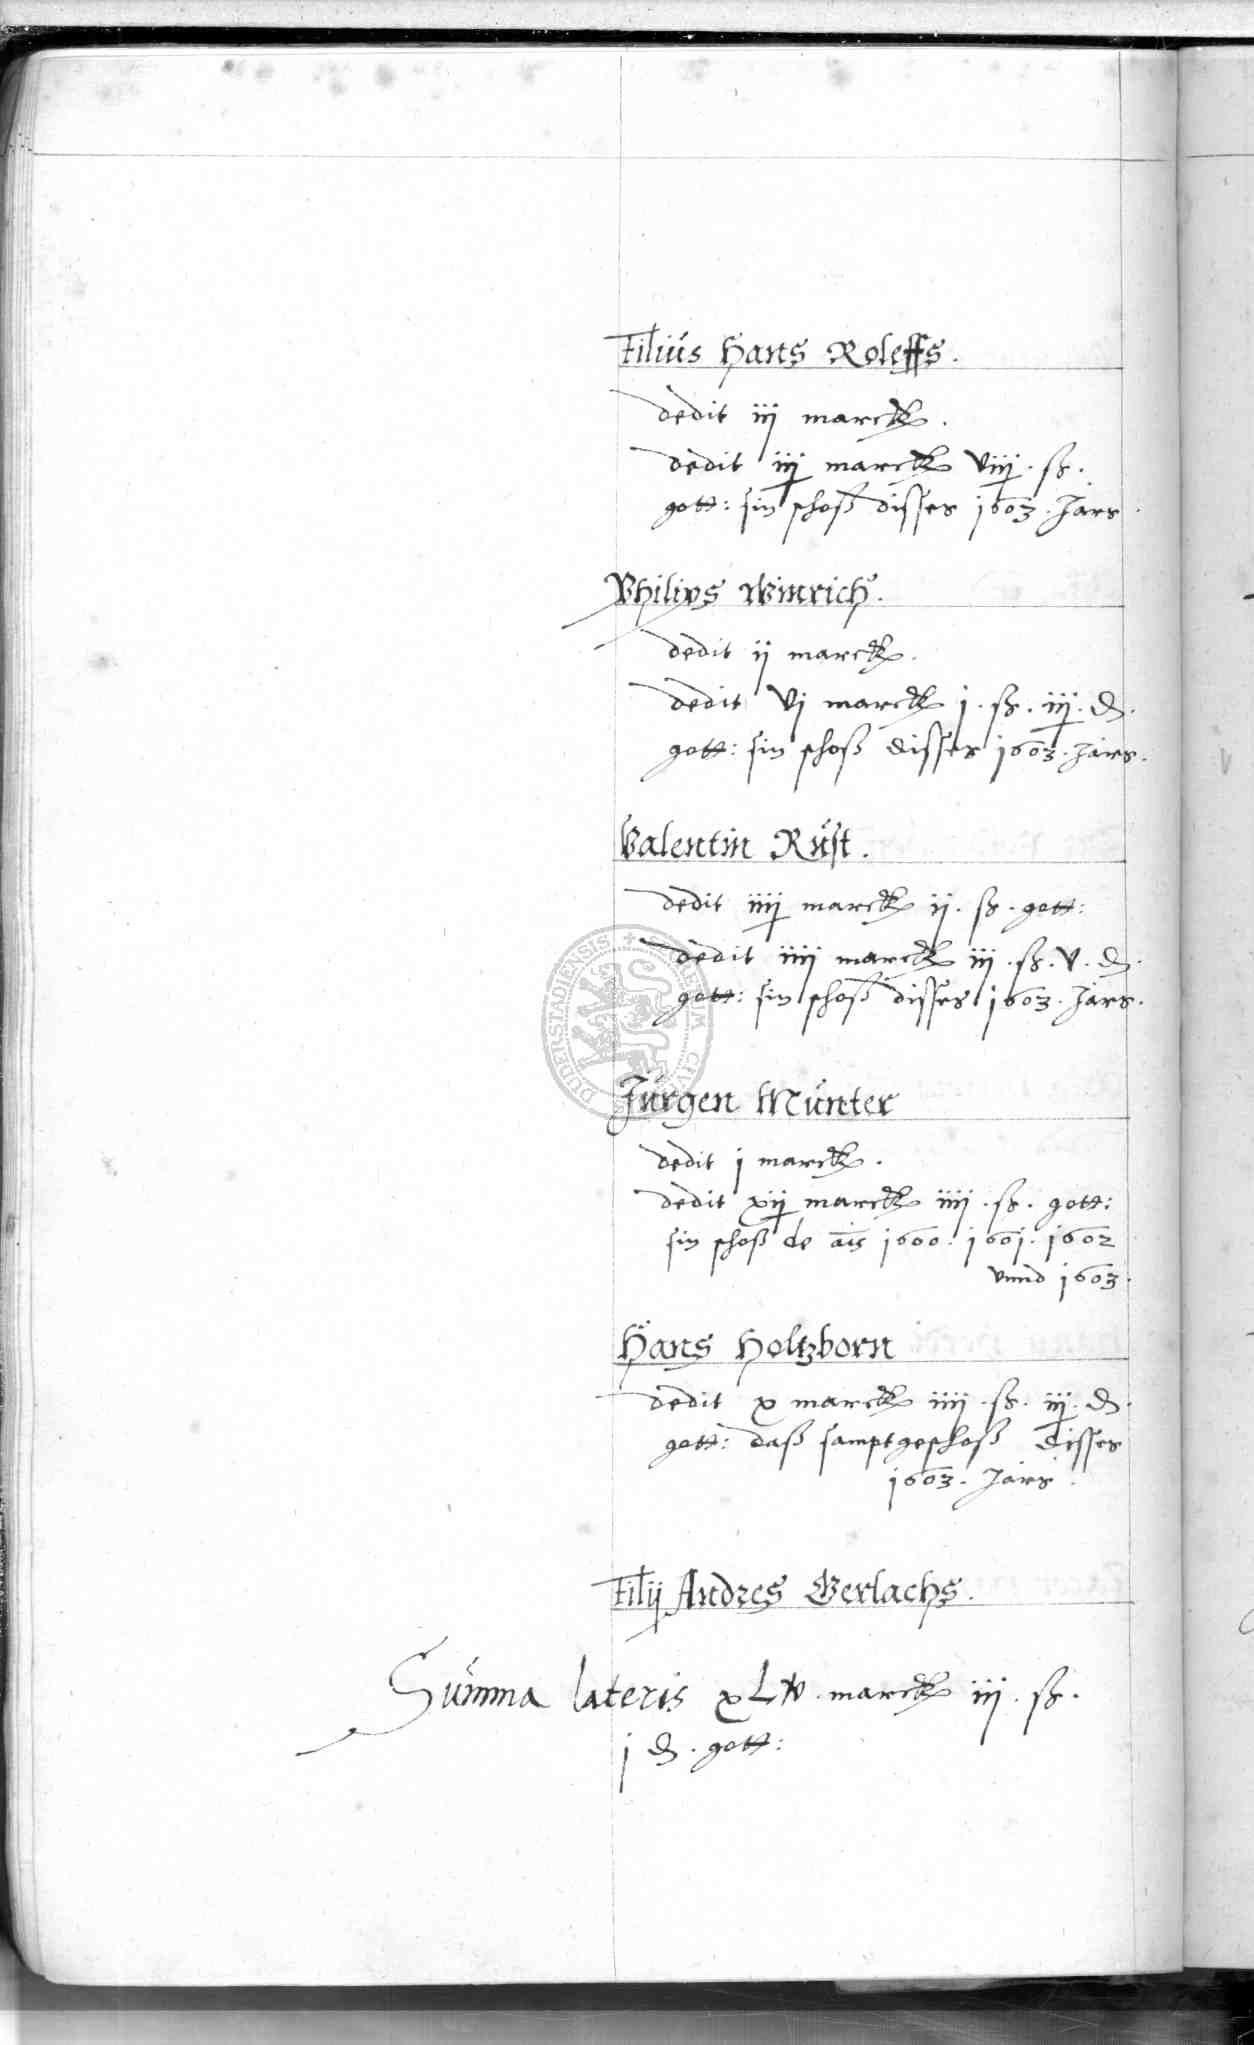 Filius Hans Roleffs.
dedit iij marck.
dedit iij marck viij. ß.
gott: sin schoß disses 1603. Jars.
Philips Winrich.
dedit ij marck.
dedit vj marck j. ß. iij. d.
gott: sin schoß disses 1603. Jars.
Valentin Rust.
dedit iiij marck ij. ß. gott:
dedit iiij marck iij. ß. v. d.
gott: sin schoß disses 1603. Jars.
DUDERSTADIENSIS
Jurgen Munter
dedit j marck.
dedit xij marck iiij. ß. gott:
sin schoß de ais 1600. 1601. 1602
vnnd 1603.
Hans Holtzborn
dedit x marck iiij. ß. iij. d.
gott: daß samptgeschoß disses
1603. Jars.
Filij Andres Gerlachs.
Summa lateris marck iij. ß.
j d. gott: